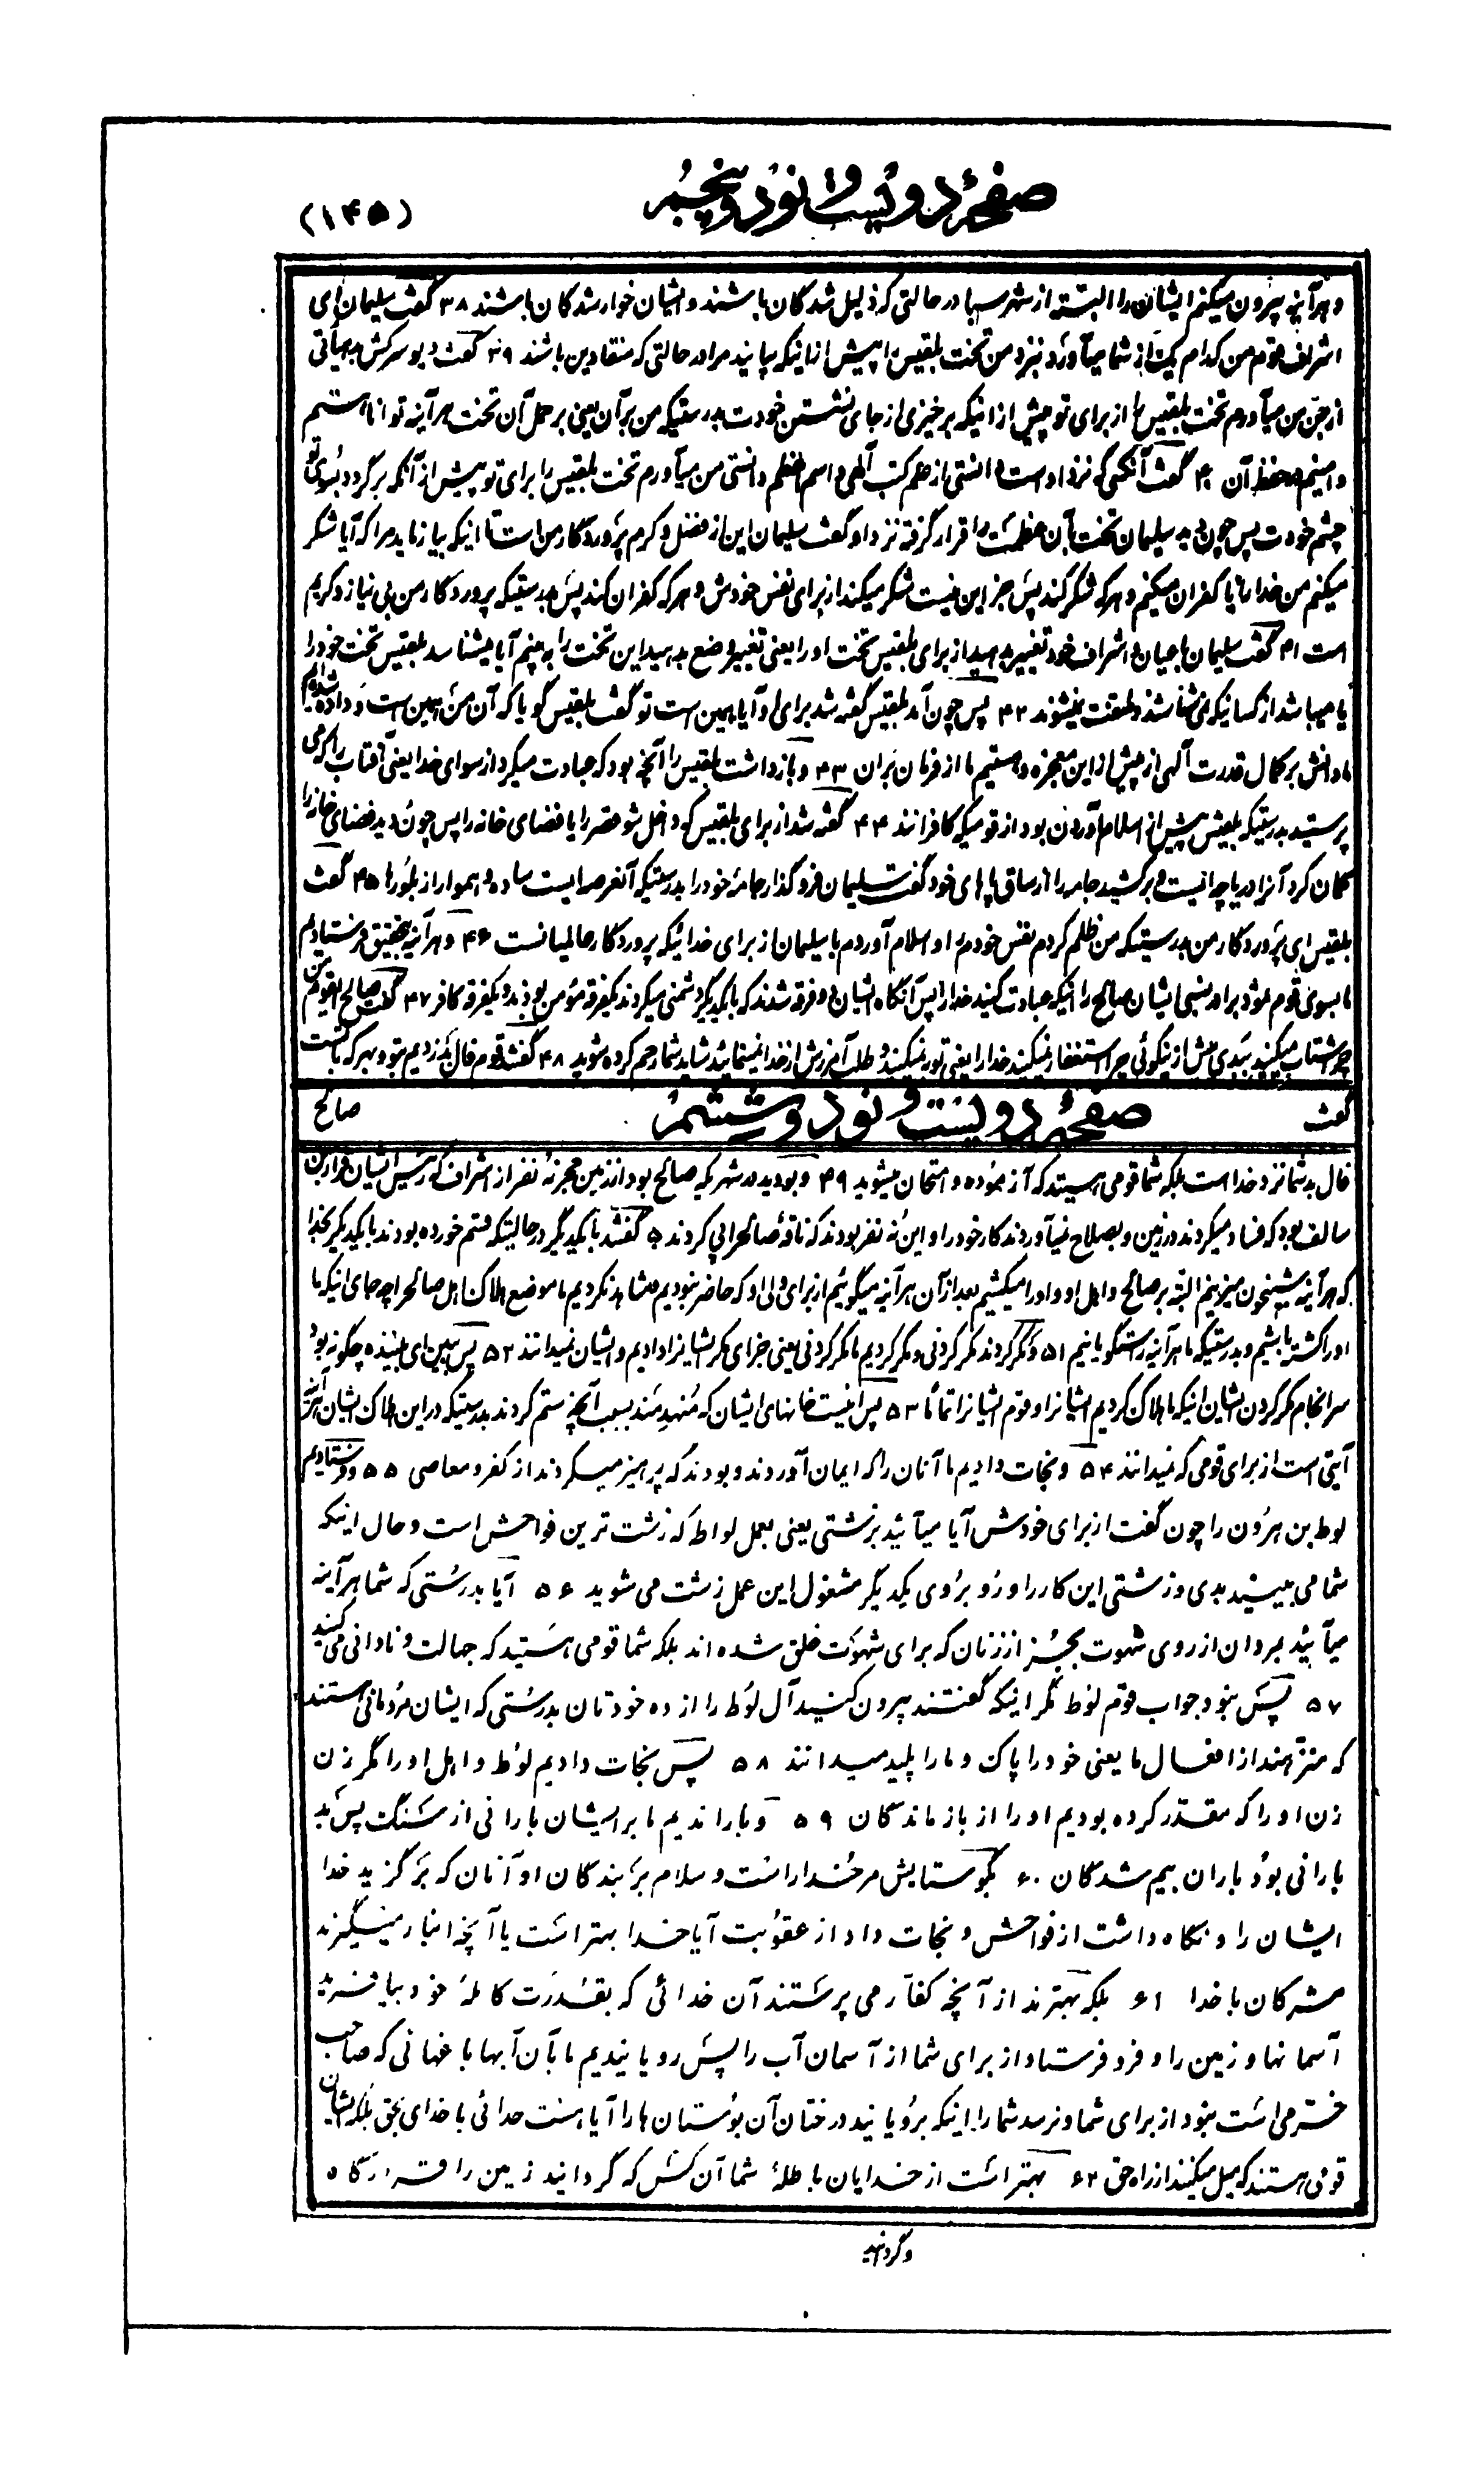 صفحهٔ دویست و نود و پنجم
(۱۴۵)
و هر آینه بیرون میکنم ایشان را البته از شهر سبا در حالتی که ذلیل شدگان باشند و ایشان خوار شدگان باشند ۳۸ گفت سلیمان ای
اشراف قوم من کدام یک از شما میآورد نزد من تخت بلقیس را پیش از اینکه بیایند مرا در حالتی که منقادین باشند ۳۹ گفت دیو سرکش مهیأتی
از جن من میآورم تخت بلقیس را از برای تو پیش از اینکه برخیزی از جای نشستن خودت بدرستیکه من بر آن یعنی بر حمل آن تخت هر آینه توانا هستم
و امینم در حفظ آن ۴۰ گفت آنکسی که نزد او است دانستی از علم کتب آلهی و اسم اعظم دانستی من میآورم تخت بلقیس را برای تو پیش از آنکه برگردد بسوی تو
چشم خودت پس چون دید سلیمان تخت بآن عظمت را قرار گرفته نزد او گفت سلیمان این از فضل و کرم پروردگار من است تا اینکه بیازماید مرا که آیا شکر
میکنم من خدا را یا کفران میکنم و هر که شکر کند پس جز این نیست شکر میکند از برای نفس خودش و هر که کفران کند پس بدرستیکه پروردگار من بی نیاز و کریم
است ۴۱ گفت سلیمان باجیان و اشراف خود تغییر بدهید از برای بلقیس تخت او را یعنی تغییر وضع بدهید این تخت را به بینم آیا میشناسد بلقیس تخت خود را
یا میباشد از کسانیکه نمی شناشند و ملتفت نمیشوند ۴۲ پس چون آمد بلقیس گفته شد برای او آیا همین است تو گفت بلقیس گویا که آن من همین است و داده شدیم
ما دانش بر کمال قدرت آلهی از پیش از این معجزه و هستیم ما از فرمان بران ۴۳ و بازداشت بلقیس را آنچه بود که عبادت میکرد از سوای خدا یعنی آفتاب را که می
پرستید بدرستیکه بلقیس پیش از اسلام آوردن بود از قومیکه کافرانند ۴۴ گفته شد از برای بلقیس که داخل شو قصر را یا فضای خانه را پس چون دید فضای خانه را
گمان کرد آنرا دریاچه ایست و برکشید جامه را از ساق پاهای خود گفت سلیمان فرو گذار جامهٔ خود را بدرستیکه آنعرصه ایست ساده و هموار از بلورها ۴۵ گفت
بلقیس ای پروردگار من بدرستیکه من ظلم کردم نفس خودم را و اسلام آوردم با سلیمان از برای خدائیکه پروردگار عالمیانست ۴۶ و هر آینه بتحقیق فرستادیم
ما بسوی قوم ثمود برادر نسبی ایشان صالح را اینکه عبادت کنید خدا را پس آنگاه ایشان دو فرقه شدند که با یکدیگر دشمنی میکردند یکفرقه مؤمن بودند و یکفرقه کافر ۴۷ گفت صالح ایقوم من
چرا شتاب میکنید ببدی پیش از نیکوئی چرا استغفار نمیکنید خدا را یعنی توبه نمیکنید و طلب آمرزش از خدا نمینمائید شاید شما رحم کرده شوید ۴۸ گفتند قوم فال بد زدیم بتو و بهر که با تست
گفت
صفحهٔ دویست و نود و ششم
صالح
فال بد شما نزد خدا است بلکه شما قومی هستید که آزموده و امتحان میشوید ۴۹ و بودید در شهریکه صالح بود از زمین حجر نه نفر از اشراف که رئیس ایشان قدار بن
سالف بود که فساد میکردند در زمین و بصلاح نمیآوردند کار خود را و این نه نفر بودند که ناقهٔ صالح را پی کردند ۵۰ گفتند با یکدیگر در حالیکه قسم خورده بودند با یکدیگر بخدا
که هر آینه شبیخون میزنیم البته بر صالح و اهل او و او را میکشیم بعد از آن هر آینه میگوئیم از برای ولی او که حاضر نبودیم و مشاهده نکردیم ما موضع هلاک اهل صالح را چه جای اینکه ما
او را کشته باشیم و بدرستیکه ما هر آینه راستگویانیم ۵۱ و مکر کردند مکر کردنی و مکر کردیم ما مکر کردنی یعنی جزای مکر ایشانرا دادیم و ایشان نمیدانند ۵۲ پس ببین ای بیننده چگونه بود
سرانجام مکر کردن ایشان اینکه ما هلاک کردیم ایشانرا و قوم ایشانرا تماما ۵۳ پس اینست خانهای ایشان که منهدمند بسبب آنچه ستم کردند بدرستیکه در این هلاک ایشان هر آینه
آیتی است از برای قومی که میدانند ۵۴ و نجات دادیم ما آنان را که ایمان آوردند و بودند که پرهیز میکردند از کفر و معاصی ۵۵ و فرستادیم
لوط بن هرون را چون گفت از برای خودش آیا میآئید بزشتی یعنی بعمل لواط که زشت ترین فواحش است و حال اینکه
شما می بینید بدی و زشتی این کار را و رو بروی یکدیگر مشغول این عمل زشت می شوید ۵۶ آیا بدرستی که شما هر آینه
میآئید بمردان از روی شهوت بجز از زنان که برای شهوت خلق شده اند بلکه شما قومی هستید که جهالت و نادانی می کنید
۵۷ پس نبود جواب قوم لوط مگر اینکه گفتند بیرون کنید آل لوط را از ده خودتان بدرستی که ایشان مردمانی هستند
که منزهند از افعال ما یعنی خود را پاک و ما را پلید میدانند ۵۸ پس نجات دادیم لوط و اهل او را مگر زن
زن او را که مقدر کرده بودیم او را از بازماندگان ۵۹ و باراندیم ما بر ایشان بارانی از سنگ پس بد
بارانی بود باران بیم شدگان ۶۰ بگو ستایش مر خدا را است و سلام بر بندگان او آنان که برگزید خدا
ایشان را و نگاه داشت از فواحش و نجات داد از عقوبت آیا خدا بهتر است یا آنچه انباز میگیرند
مشرکان با خدا ۶۱ بلکه بهترند از آنچه کفار می پرستند آن خدائی که بقدرت کاملهٔ خود بیافرید
آسمانها و زمین را و فرو فرستاد از برای شما از آسمان آب را پس رویانیدیم ما بآن آبها باغهائی که صاحب
خرمی است نبود از برای شما و نرسد شما را اینکه برویانید درختان آن بوستان ها را آیا هست خدائی با خدای بحق بلکه ایشان
قومی هستند که میل میکنند از راه حق ۶۲ بهتر است از خدایان باطلهٔ شما آن کس که گردانید زمین را قرارگاه
و گردانید